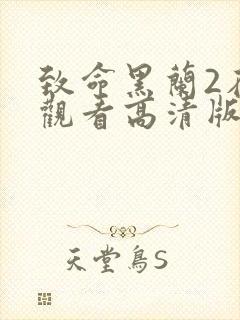 致命黑蘭2
觀看高清版
天堂鳥S